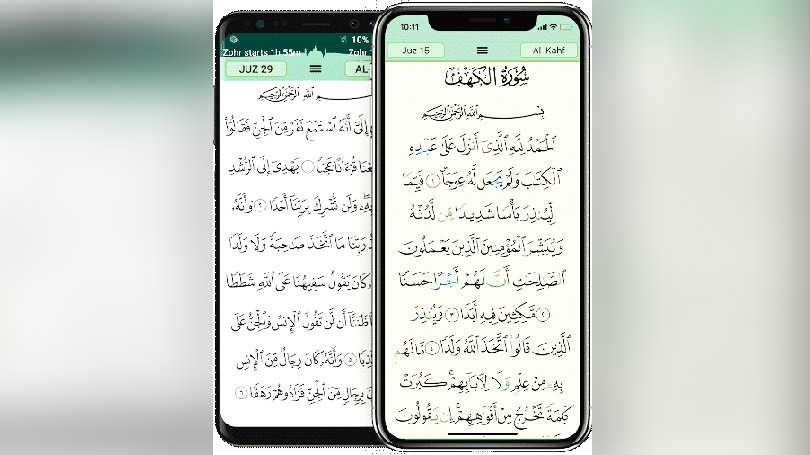 10%
Zohr starts 1h 55m
Zohr
JUZ 29
AL-
بِسْمِ ٱللَّهِ ٱلرَّحْمَٰنِ ٱلرَّحِيمِ
إِلَىَّ أَنَّهُ ٱسْتَمَعَ نَفَرٌ مِّنَ ٱلْجِنِّ فَقَالُوٓا۟
قُرْءَانًا عَجَبًا ۝ يَهْدِىٓ إِلَى ٱلرُّشْدِ
وَلَن نُّشْرِكَ بِرَبِّنَآ أَحَدًا ٢ وَأَنَّهُۥ
رَبِّنَا مَا ٱتَّخَذَ صَٰحِبَةً وَلَا وَلَدًا
كَانَ يَقُولُ سَفِيهُنَا عَلَى ٱللَّهِ شَطَطًا
ظَنَنَّآ أَن لَّن تَقُولَ ٱلْإِنسُ وَٱلْجِنُّ عَلَى
٥ وَأَنَّهُۥ كَانَ رِجَالٌ مِّنَ ٱلْإِنسِ
بِرِجَالٍ مِّنَ ٱلْجِنِّ فَزَادُوهُمْ رَهَقًا ٦
10:11
Juz 15
Al Kahf
سُورَةُ الكَهْفِ
بِسْمِ ٱللَّهِ ٱلرَّحْمَٰنِ ٱلرَّحِيمِ
ٱلْحَمْدُ لِلَّهِ ٱلَّذِىٓ أَنزَلَ عَلَىٰ عَبْدِهِ
ٱلْكِتَٰبَ وَلَمْ يَجْعَل لَّهُۥ عِوَجَا ١ قَيِّمًا
لِّيُنذِرَ بَأْسًا شَدِيدًا مِّن لَّدُنْهُ
وَيُبَشِّرَ ٱلْمُؤْمِنِينَ ٱلَّذِينَ يَعْمَلُونَ
ٱلصَّٰلِحَٰتِ أَنَّ لَهُمْ أَجْرًا حَسَنًا
٢ مَّٰكِثِينَ فِيهِ أَبَدًا ٣ وَيُنذِرَ
ٱلَّذِينَ قَالُوا۟ ٱتَّخَذَ ٱللَّهُ وَلَدًا ٤ مَّا لَهُم
بِهِۦ مِنْ عِلْمٍ وَلَا لِـَٔابَآئِهِمْ ۚ كَبُرَتْ
كَلِمَةً تَخْرُجُ مِنْ أَفْوَٰهِهِمْ ۚ إِن يَقُولُونَ